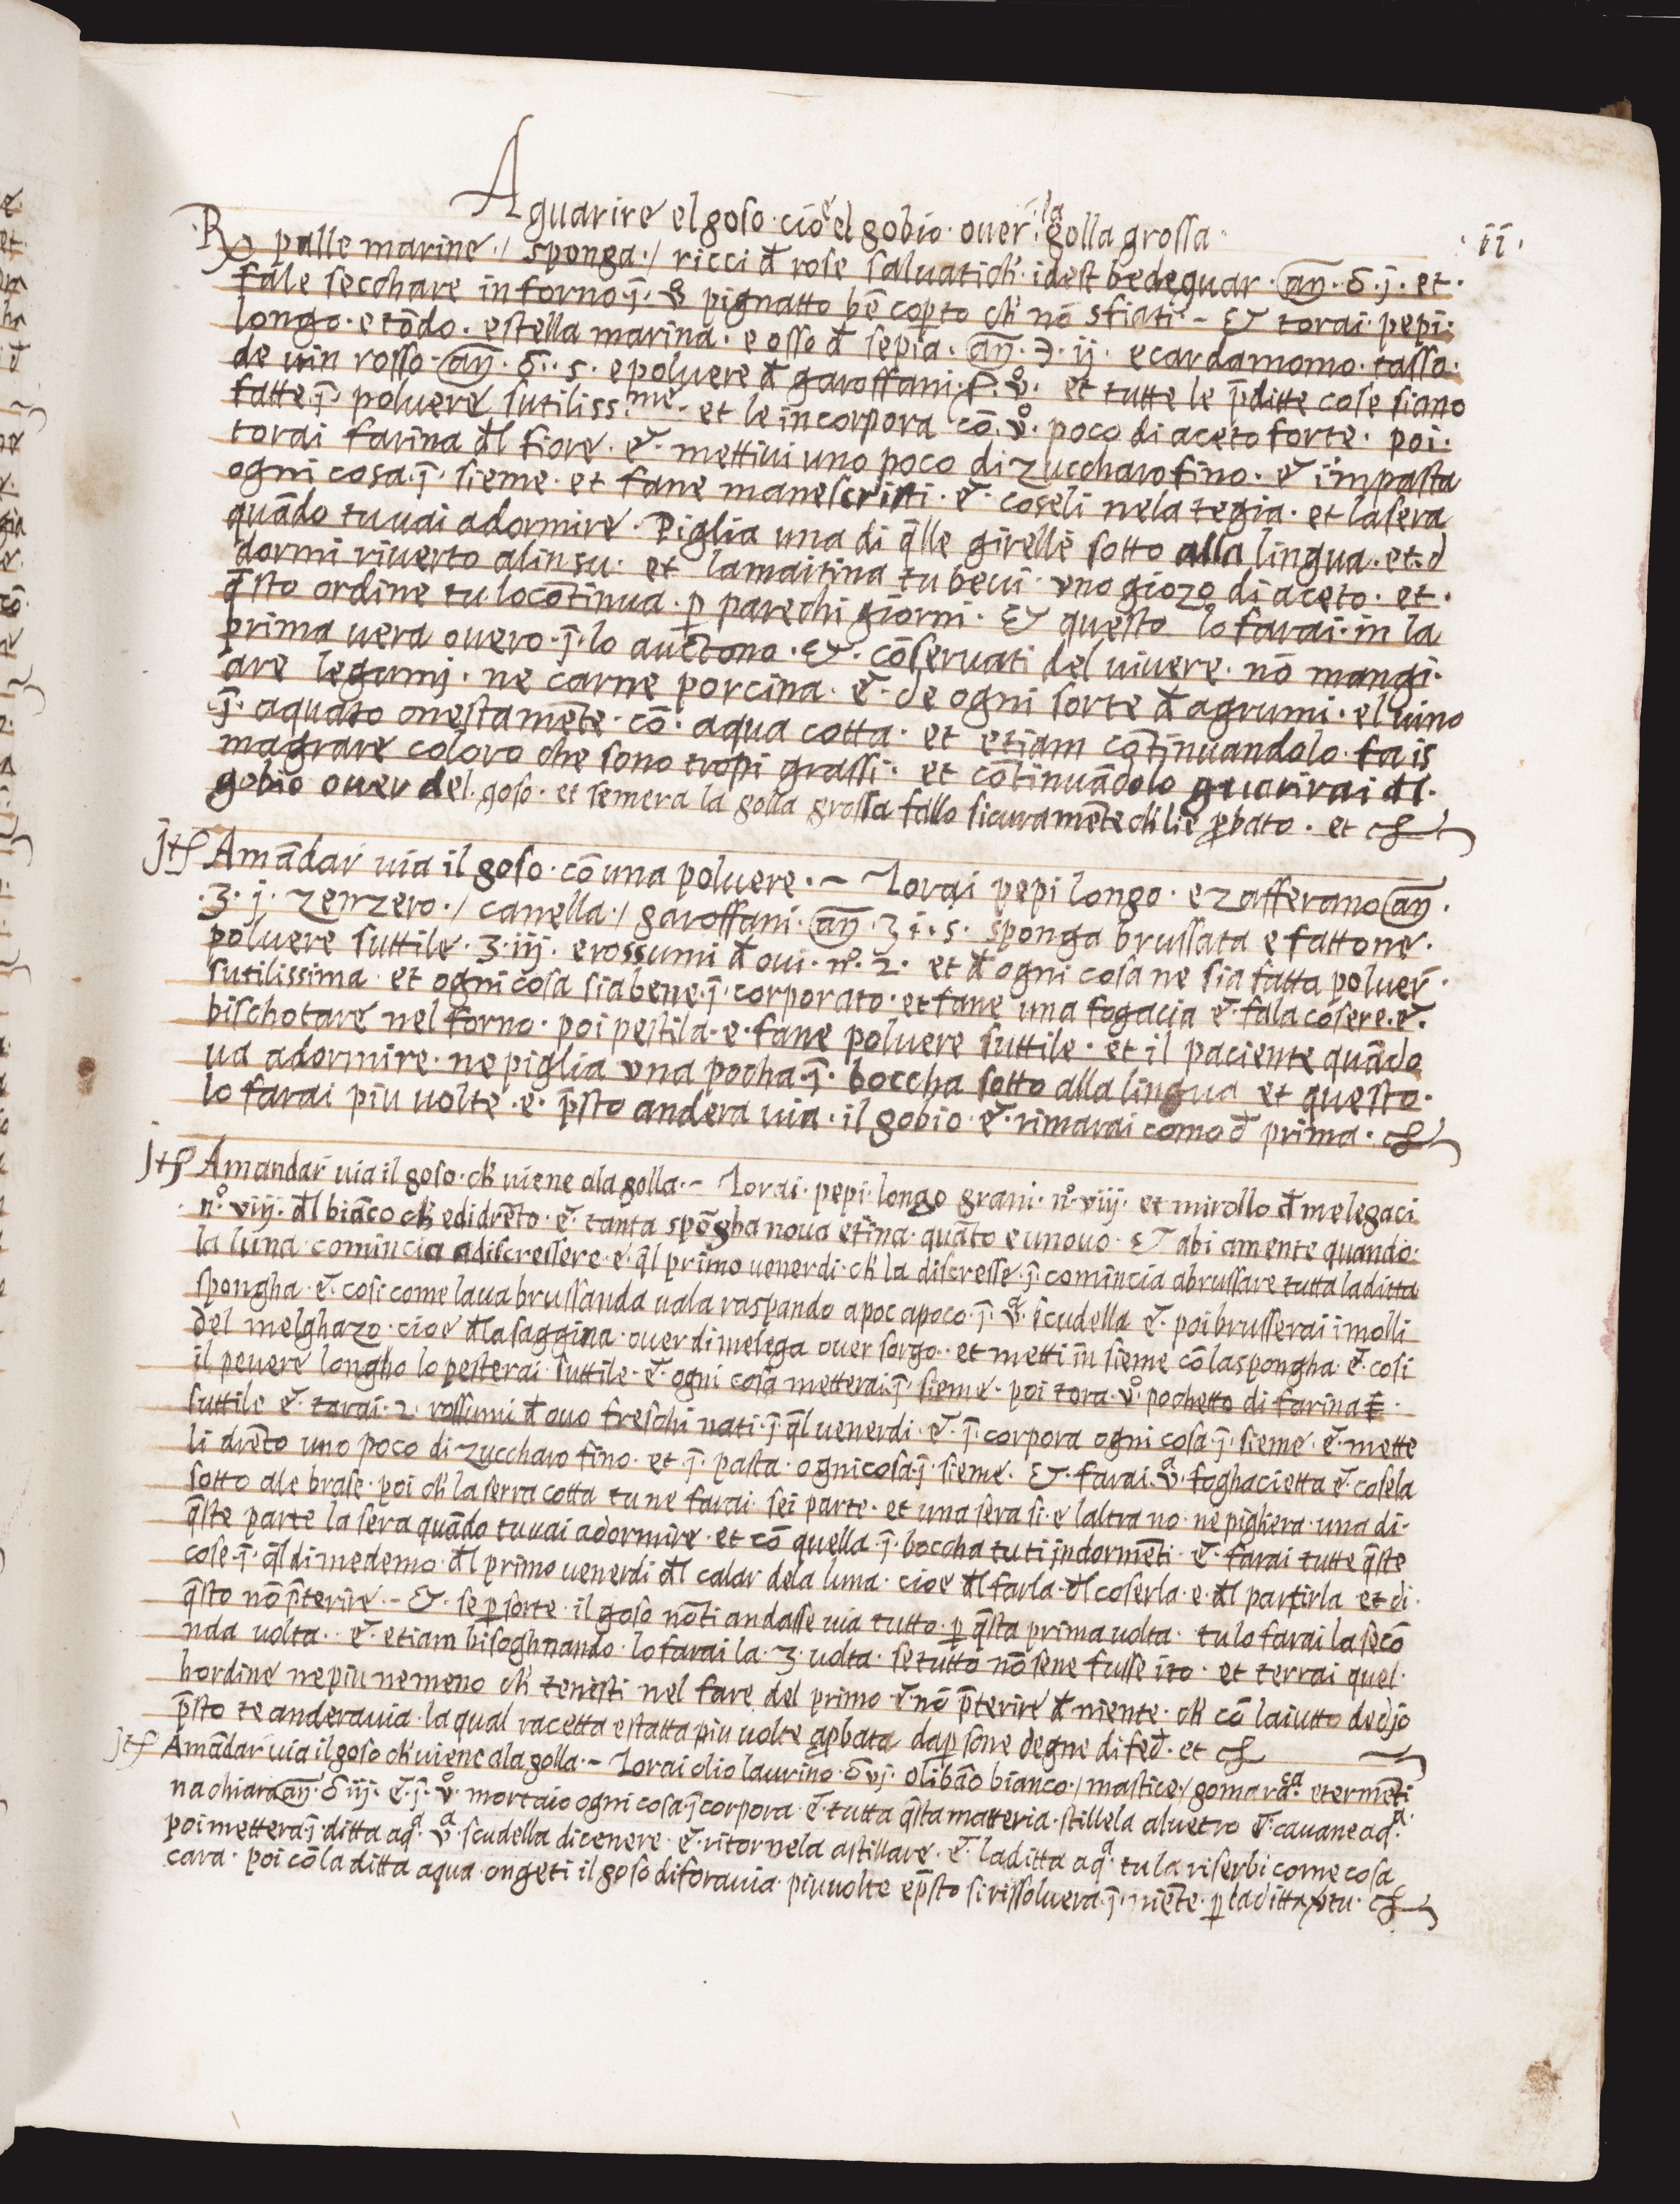 A guarire el goso · cioe el gobio · ouer · la golla grossa ·
· ii ·
Rx palle marine · / sponga · / ricci đ rose saluatich' · idest bedeguar · añ · ō · j · et ·
fale secchare in forno · j̄ · vº pignatto bē cop̱to ch' nō sfiati · ~ Et torai · pepi ·
longo · e tōdo · e stella marina · e osso đ sepia · añ · ℈ · ij · e cardamomo · tasso ·
de uin rosso · añ · ō · s · e poluere đ garoffani · p̱ · vº · et tutte le p̄ditte cose siano
fatte · j̄ · poluere sutiliss:me · et le incorpora cō · vº · poco di aceto forte · poi ·
torai farina đl fiore · et · mettiui uno poco di zuccharo fino · et impasta
ogni cosa · j̄ · sieme · et fane manescristi · et · coseli nela tegia · et la sera
quādo tu uai a dormire · Piglia una di q̄lle girelle sotto alla lingua · et · d
dormi riuerto alinsu · et la maitina tu beui · vno giozo di aceto · et ·
q̄sto ordine tu lo cōtinua · p̱ parechi giorni · Et questo lo farai · in la
prima uera ouero · j̄ · lo auctono · Et · cōseruati del uiuere · nō mangi ·
are legumj · ne carne porcina · et · de ogni sorte đ agrumi · el uino
j̄ · aquato onestamēte · cō · aqua cotta · et etiam cōtinuandolo · fa is
magrare coloro che sono tropi grassi · et cōtinuādolo guarirai đl ·
gobio ouer del · goso · et semera la golla grossa fallo sicuramēte ch' li e p̱bato · et cħ
jtē A mādar uia il goso · cō una poluere · ~ Torai pepi longo · e zafferano añ ·
· ʒ · j · zenzero · / canella · / garoffani · añ · ʒ i · s · sponga brussata e fattone ·
poluere suttile · ʒ · iij · e rossumi đ oui · nº · 2 · et đ ogni cosa ne sia fatta poluer̄ ·
sutilissima · et ogni cosa sia bene · j̄ · corporato · et fane una fogacia et · fala cosere · et ·
bischotare nel forno · poi pestila · e · fane poluere suttile · et il paciente quādo
ua a dormire · ne piglia vna pocha · j̄ · boccha sotto alla lingua et questo ·
lo farai piu uolte · e · p̄sto andera uia · il gobio · et · rimarai como đ prima · cħ
jtē A mandar uia il goso · ch' uiene ala golla · ~ Torai · pepi · longo grani · nº · viij · et mirollo đ melegaci
· nº · viij · đl biāco ch' e di drēto · et · tanta spōgha noua e fina · quāto e un ouo · Et abi a mente quando ·
la luna · comincia a discressere · e · q̄l primo uenerdi · ch' la discresse · j̄ · comincia a brussare tutta la ditta
spongha · et · cosi come la ua brussanda uala raspando a poc a poco · j̄ · vª · scudella et · poi brusserai i molli
del melghazo · cioe đla saggina · ouer di melega ouer sorgo · et metti in sieme cō la spongha · et · cosi
il peuere longho lo pesterai · suttile · et · ogni cosa metterai · j̄ · sieme · poi tora · vº · pochetto di farina ·
suttile et · tarai · 2 · rossumi đ ouo freschi nati · j̄ · q̄l uenerdi · et · j̄ · corpora ogni cosa · j̄ · sieme · et · mette
li drēto uno poco di zuccharo fino · et · j̄ · pasta · ogni cosa · j̄ · sieme · Et · farai · vª · foghacietta et · cosela
sotto ale brase · poi ch' la serra cotta tu ne farai · sei parte · et una sera si · e laltra no · ne pighera · una di ·
q̄ste parte la sera quādo tu uai a dormire · et cō quella · j̄ · boccha tu ti jndormēti · et · farai tutte q̄ste
cose · j̄ · q̄l di medemo · đl primo uenerdi đl calar dela luna · cioe đl farla · đl coserla · e · đl partirla et di ·
q̄sto nō p̄terire · ~ Et · se p̱ sorte · il goso nō ti andasse uia tutto · p̱ q̄sta prima uolta · tu lo farai la secō
nda uolta · et · etiam bisoghnando · lo farai la · 3 · uolta · se tutto nō sene fusse ito · et terrai quel ·
hordine ne piu ne meno ch' tenesti nel fare del primo et · nō p̄terire đ niente · ch' cō laiutto de djo
p̄sto te andera uia · la qual racetta e statta piu uolte ap̱bata da p̱sone degne di fed̄ · et cħ
jtē A mādar uia il goso ch' uiene ala golla · ~ Torai olio laurino · ō vj · olibāo bianco · / mastice · / goma raª · e termēti
na chiara añ · ō iij · et · j̄ · vº · mortaio ogni cosa · j̄ corpora · et · tutta q̄sta matteria · stillela al uetro et · cauane aqª ·
poi mettera j̄ ditta aqª · vª · scudella di cenere · et · ritornela a stillare · et · la ditta aqª · tu la riserbi come cosa
cara · poi cō la ditta aqua · ongeti il goso di fora uia · piu uolte e p̄sto si rissoluera · j̄ · niēte · p̱ la ditta v̄tu · cħ